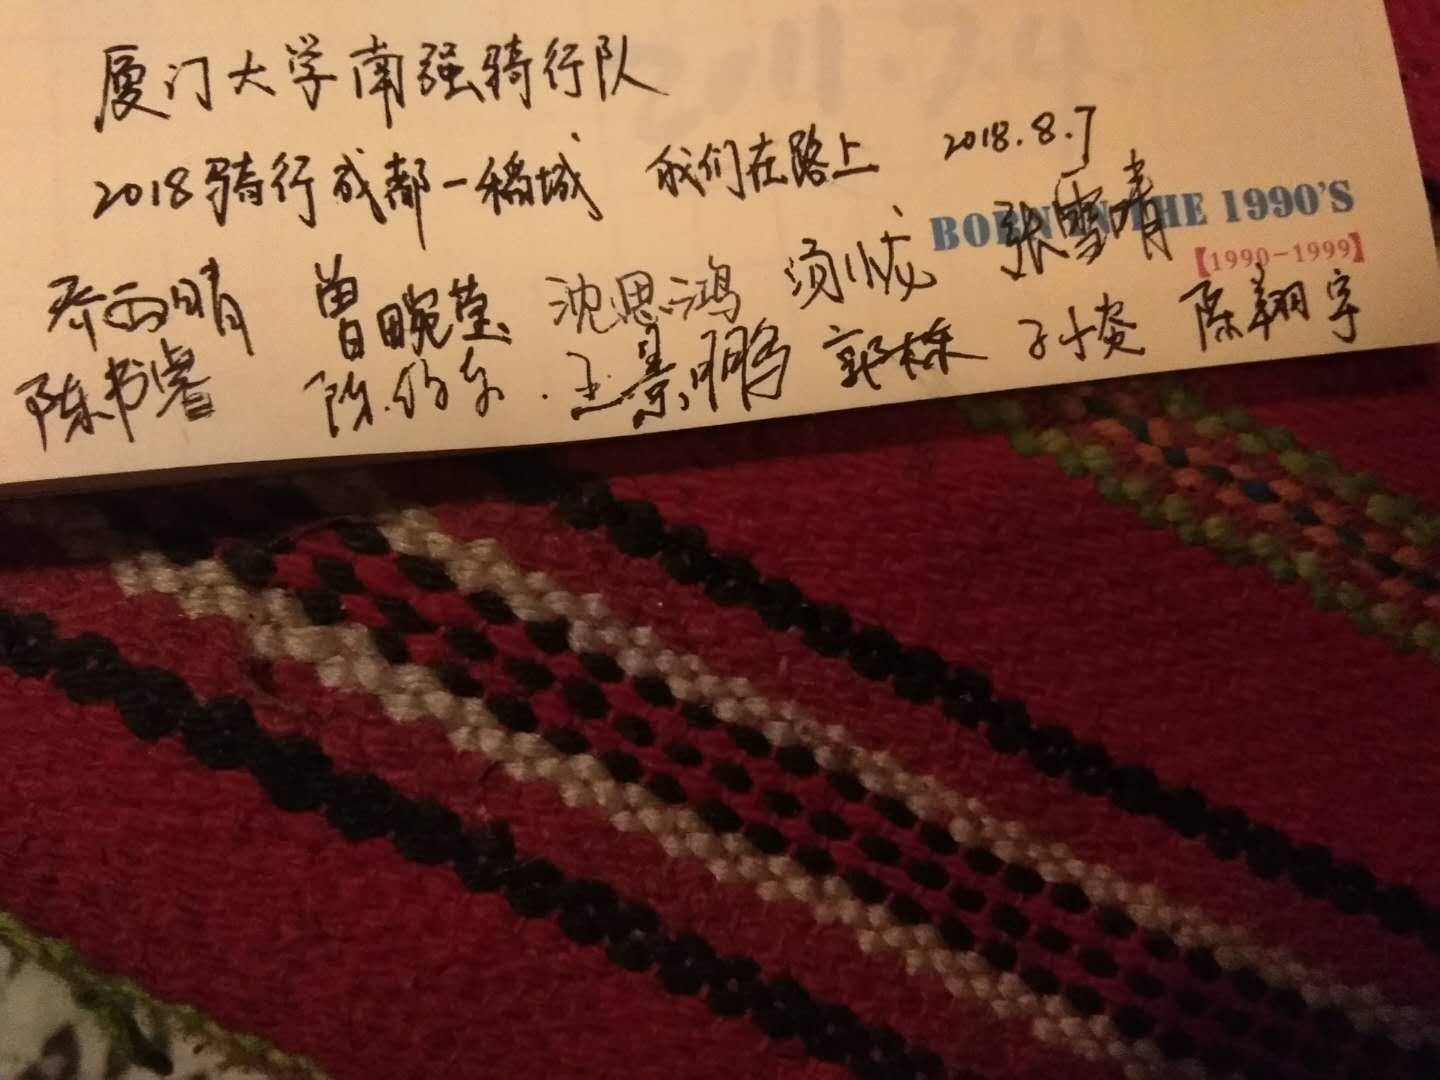 厦门大学南强骑行队
2018骑行成都-稻城 我们在路上 2018.8.7
BORN IN THE 1990'S
【1990-1999】
乔雨晴 曾畹莹 沈思鸿 张雪晴
陈书睿 王景鹏 郭栋 陈翔宇